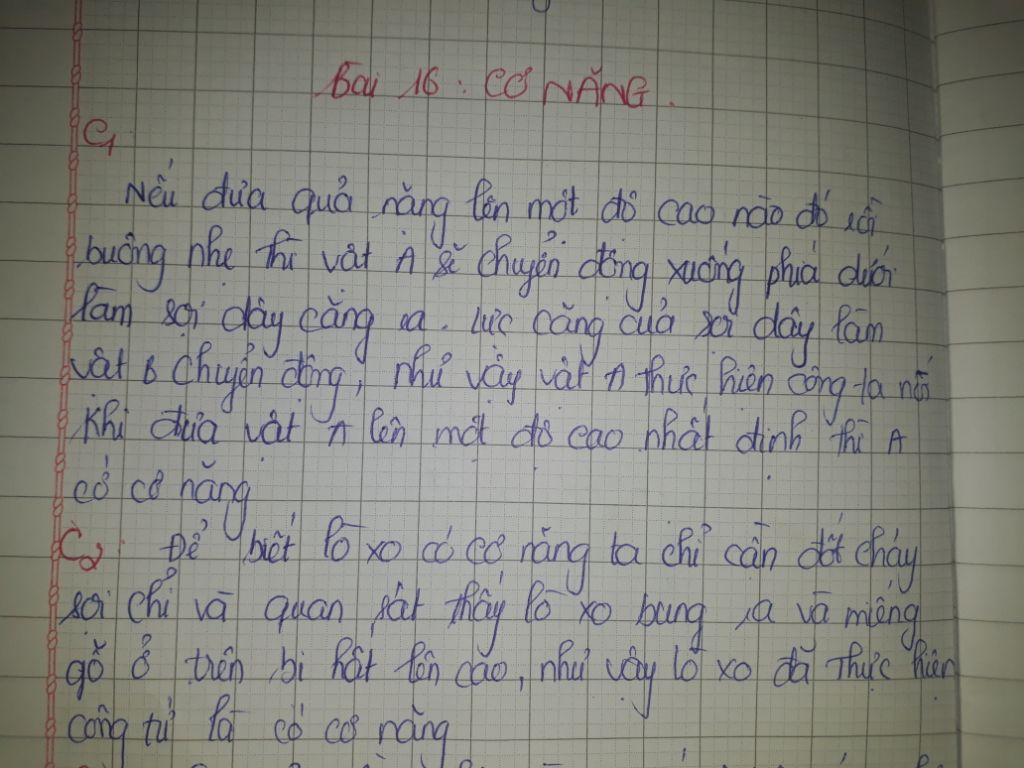 Bài 16: CƠ NĂNG.
C1
Nếu đưa quả nặng lên một độ cao nào đó rồi
buông nhẹ thì vật A sẽ chuyển động xuống phía dưới
làm sợi dây căng ra. Lực căng của sợi dây làm
vật B chuyển động, như vậy vật A thực hiện công ta nói
khi đưa vật A lên một độ cao nhất định thì A
có cơ năng
C2: Để biết lò xo có cơ năng ta chỉ cần đốt cháy
sợi chỉ và quan sát thấy lò xo bung ra và miếng
gỗ ở trên bị hất lên cao, như vậy lò xo đã thực hiện
công tử là có cơ năng